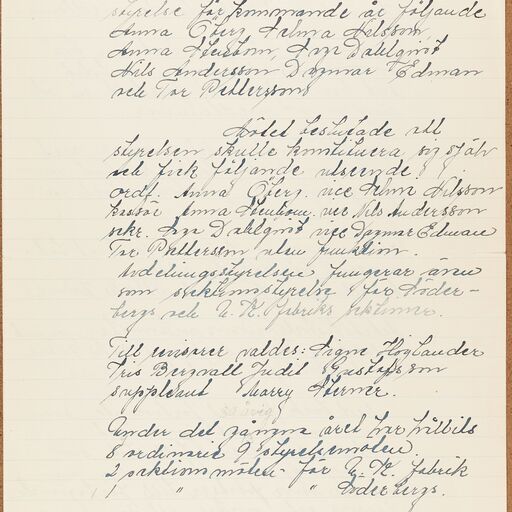 styrelse för kommande år följande
Anna Öberg, Selma Nilsson,
Anna Stenbom, Inga Dahlqvist
Nils Andersson Dagmar Edman
och Tor Pettersson
Mötet beslutade att
styrelsen skulle konstituera sig själv
och fick följande utseende.
ordf. Anna Öberg. vice Selma Nilsson
kassör Anna Stenbom. vice Nils Andersson
sekr. Inga Dahlqvist vice Dagmar Edman
Tor Pettersson utan funktion.
Avdelningsstyrelsen fungerar även
som sektionsstyrelse för Söder-
bergs och U. K. fabriks sektioner.
Till revisorer valdes: Signe Höglander
Iris Bergvall Judit Gustafsson
suppleant Harry Sterner.
Under det gångna året har hållits
8 ordinarie 9 styrelsemöten.
2 sektionsmöten för U. K. fabrik
1 " " Söderbergs.